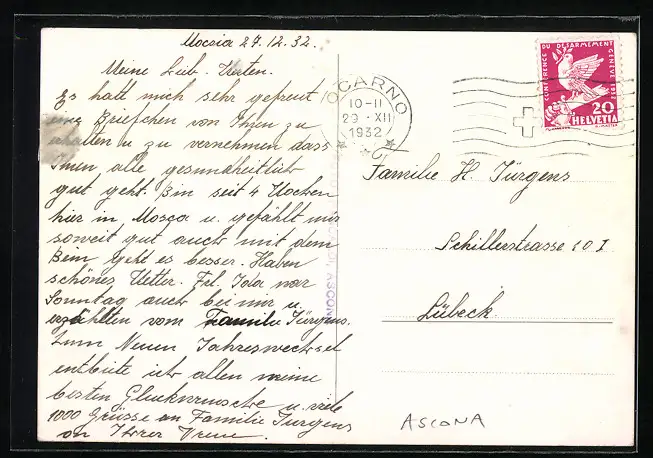 Moscia 27.12.32.
Meine Lieb. Karten.
Es hatt mich sehr gefreut
eine Briefchen von Ihnen zu
erhalten u zu vernehmen dass
Ihnen alle gesundheitlich
gut geht. Bin seit 4 Wochen
hier in Moscia u. gefählt mir
soweit gut auch mit dem
Bein geht es besser. Haben
schönes Wetter. Frl. Ida war
Sonntag auch bei mir u.
erzählten vom Familie Jürgens.
Zum Neuen Jahreswechsel
entbiete ich allen meine
besten Glückwünsche u. viele
1000 Grüsse an Familie Jurgens
an Ihrer Vreni.
LOCARNO
10-11
29.XII
1932
CONFÉRENCE DU DÉSARMEMENT GENÈVE 1932
20
HELVETIA
Familie H. Jürgens
Schillerstrasse 10 I
Lübeck
ASCONA
ASCONA